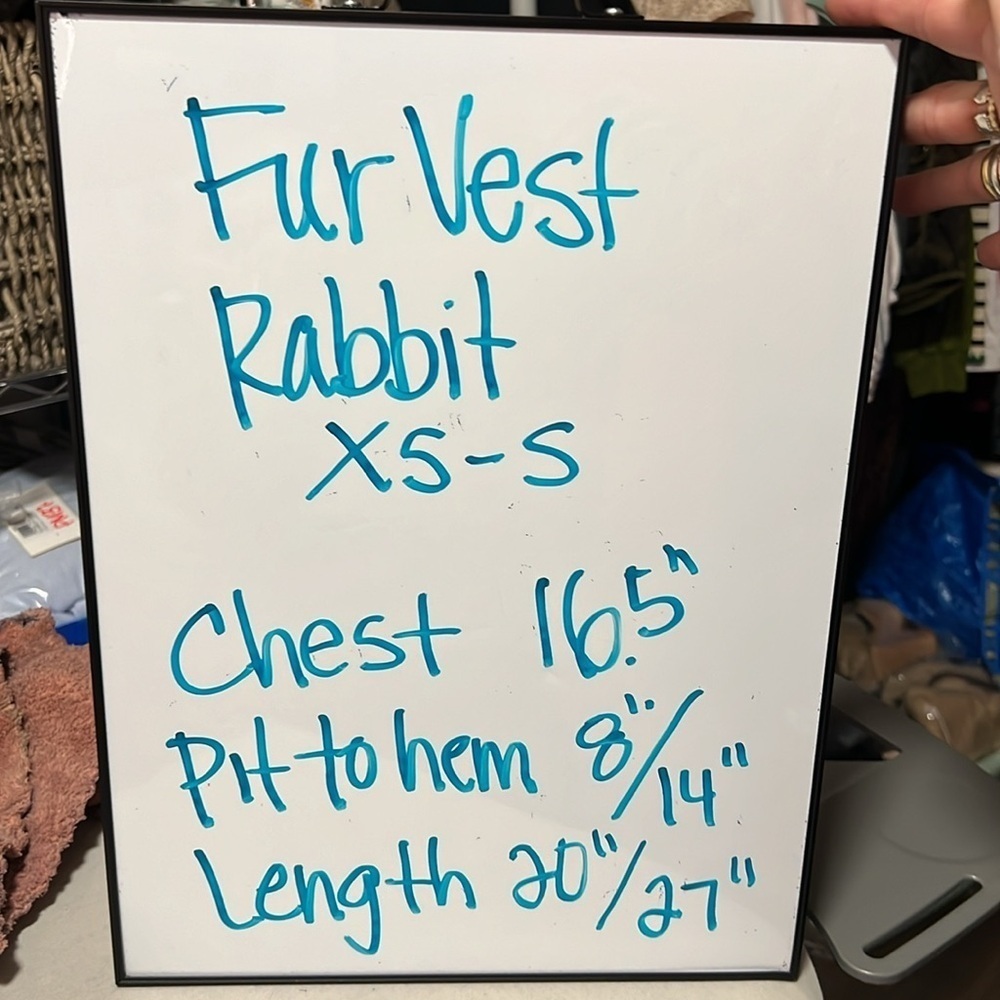 Fur Vest
Rabbit
XS-S
Chest 16.5"
Pit to hem 8"/14"
Length 20"/27"